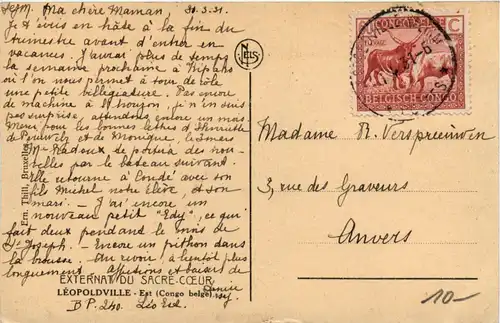 Ma chère Maman, 31.3.31.
Je t'écris en hâte à la fin du
trimestre avant d'entrer en
vacances. J'aurai plus de temps
la semaine prochaine à
où l'on nous permet à tour de rôle
une petite villégiature. Pas encore
de machine à St , je n'en suis
pas surprise, attendons encore un mois.
Merci pour les bonnes lettres d'Henriette
de et de Monique,
M. Radoux de des nou-
velles par le bateau suivant.
Elle retourne à Condé avec son
fils Michel notre élève, et son
mari. - J'ai encore un
nouveau petit "Edy", ce qui
fait deux pendant le mois de
St Joseph. - Encore un python dans
la brousse. Au revoir, à bientôt plus
longuement. Affections et baisers de
Denise
EXTERNAT DU SACRÉ-CŒUR
LÉOPOLDVILLE - Est (Congo belge)
B.P. 240. Léo Est
Ern. Thill, Bruxelles
NELS
CONGO BELGE
BELGISCH CONGO
Madame R. Verspreeuwen
3, rue des Graveurs
Anvers
10-